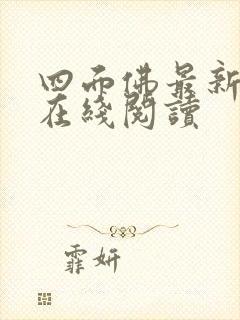 四面佛最新
在綫閱讀
霏妍